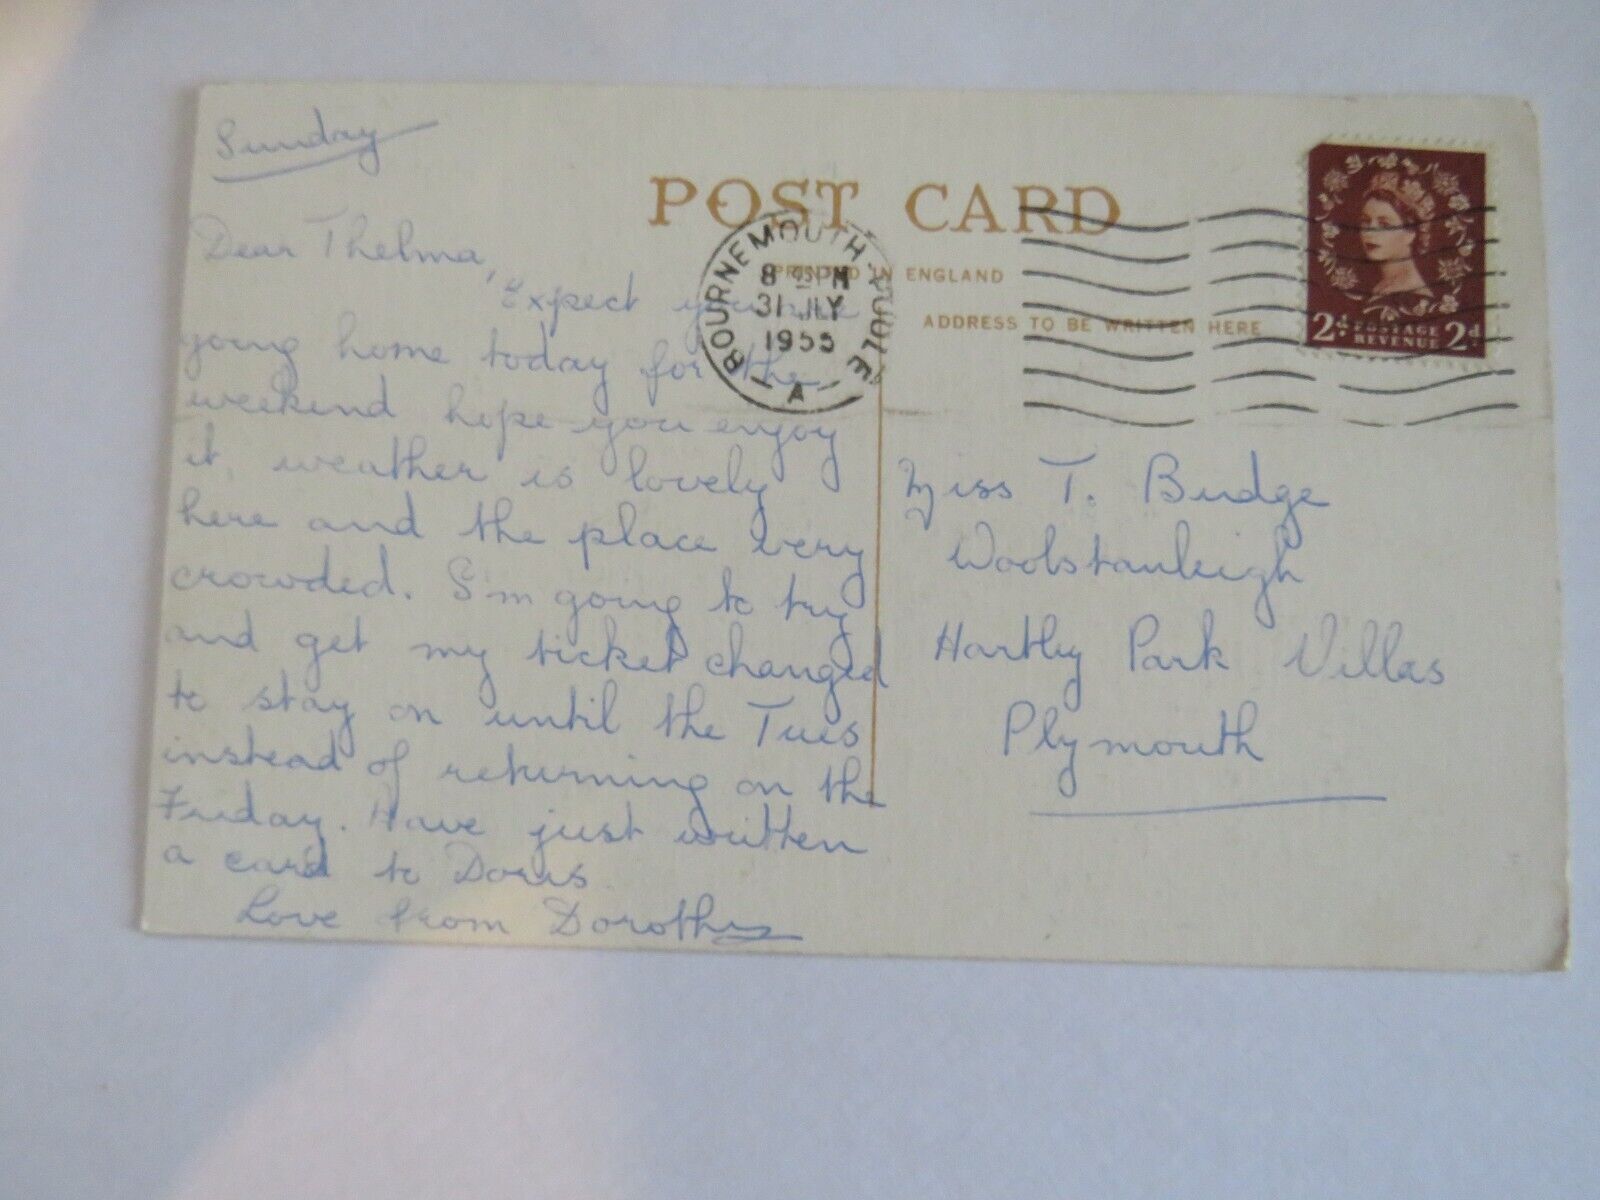 Sunday
Dear Thelma,
Expect you are
going home today for the
weekend hope you enjoy
it, weather is lovely
here and the place very
crowded. I'm going to try
and get my ticket changed
to stay on until the Tues
instead of returning on the
Friday. Have just written
a card to Doris.
Love from Dorothy
POST CARD
PRINTED IN ENGLAND
ADDRESS TO BE WRITTEN HERE
BOURNEMOUTH POOLE
8 PM
31 JLY
1955
A
2d POSTAGE REVENUE 2d
Miss T. Budge
Woolstanleigh
Hartley Park Villas
Plymouth